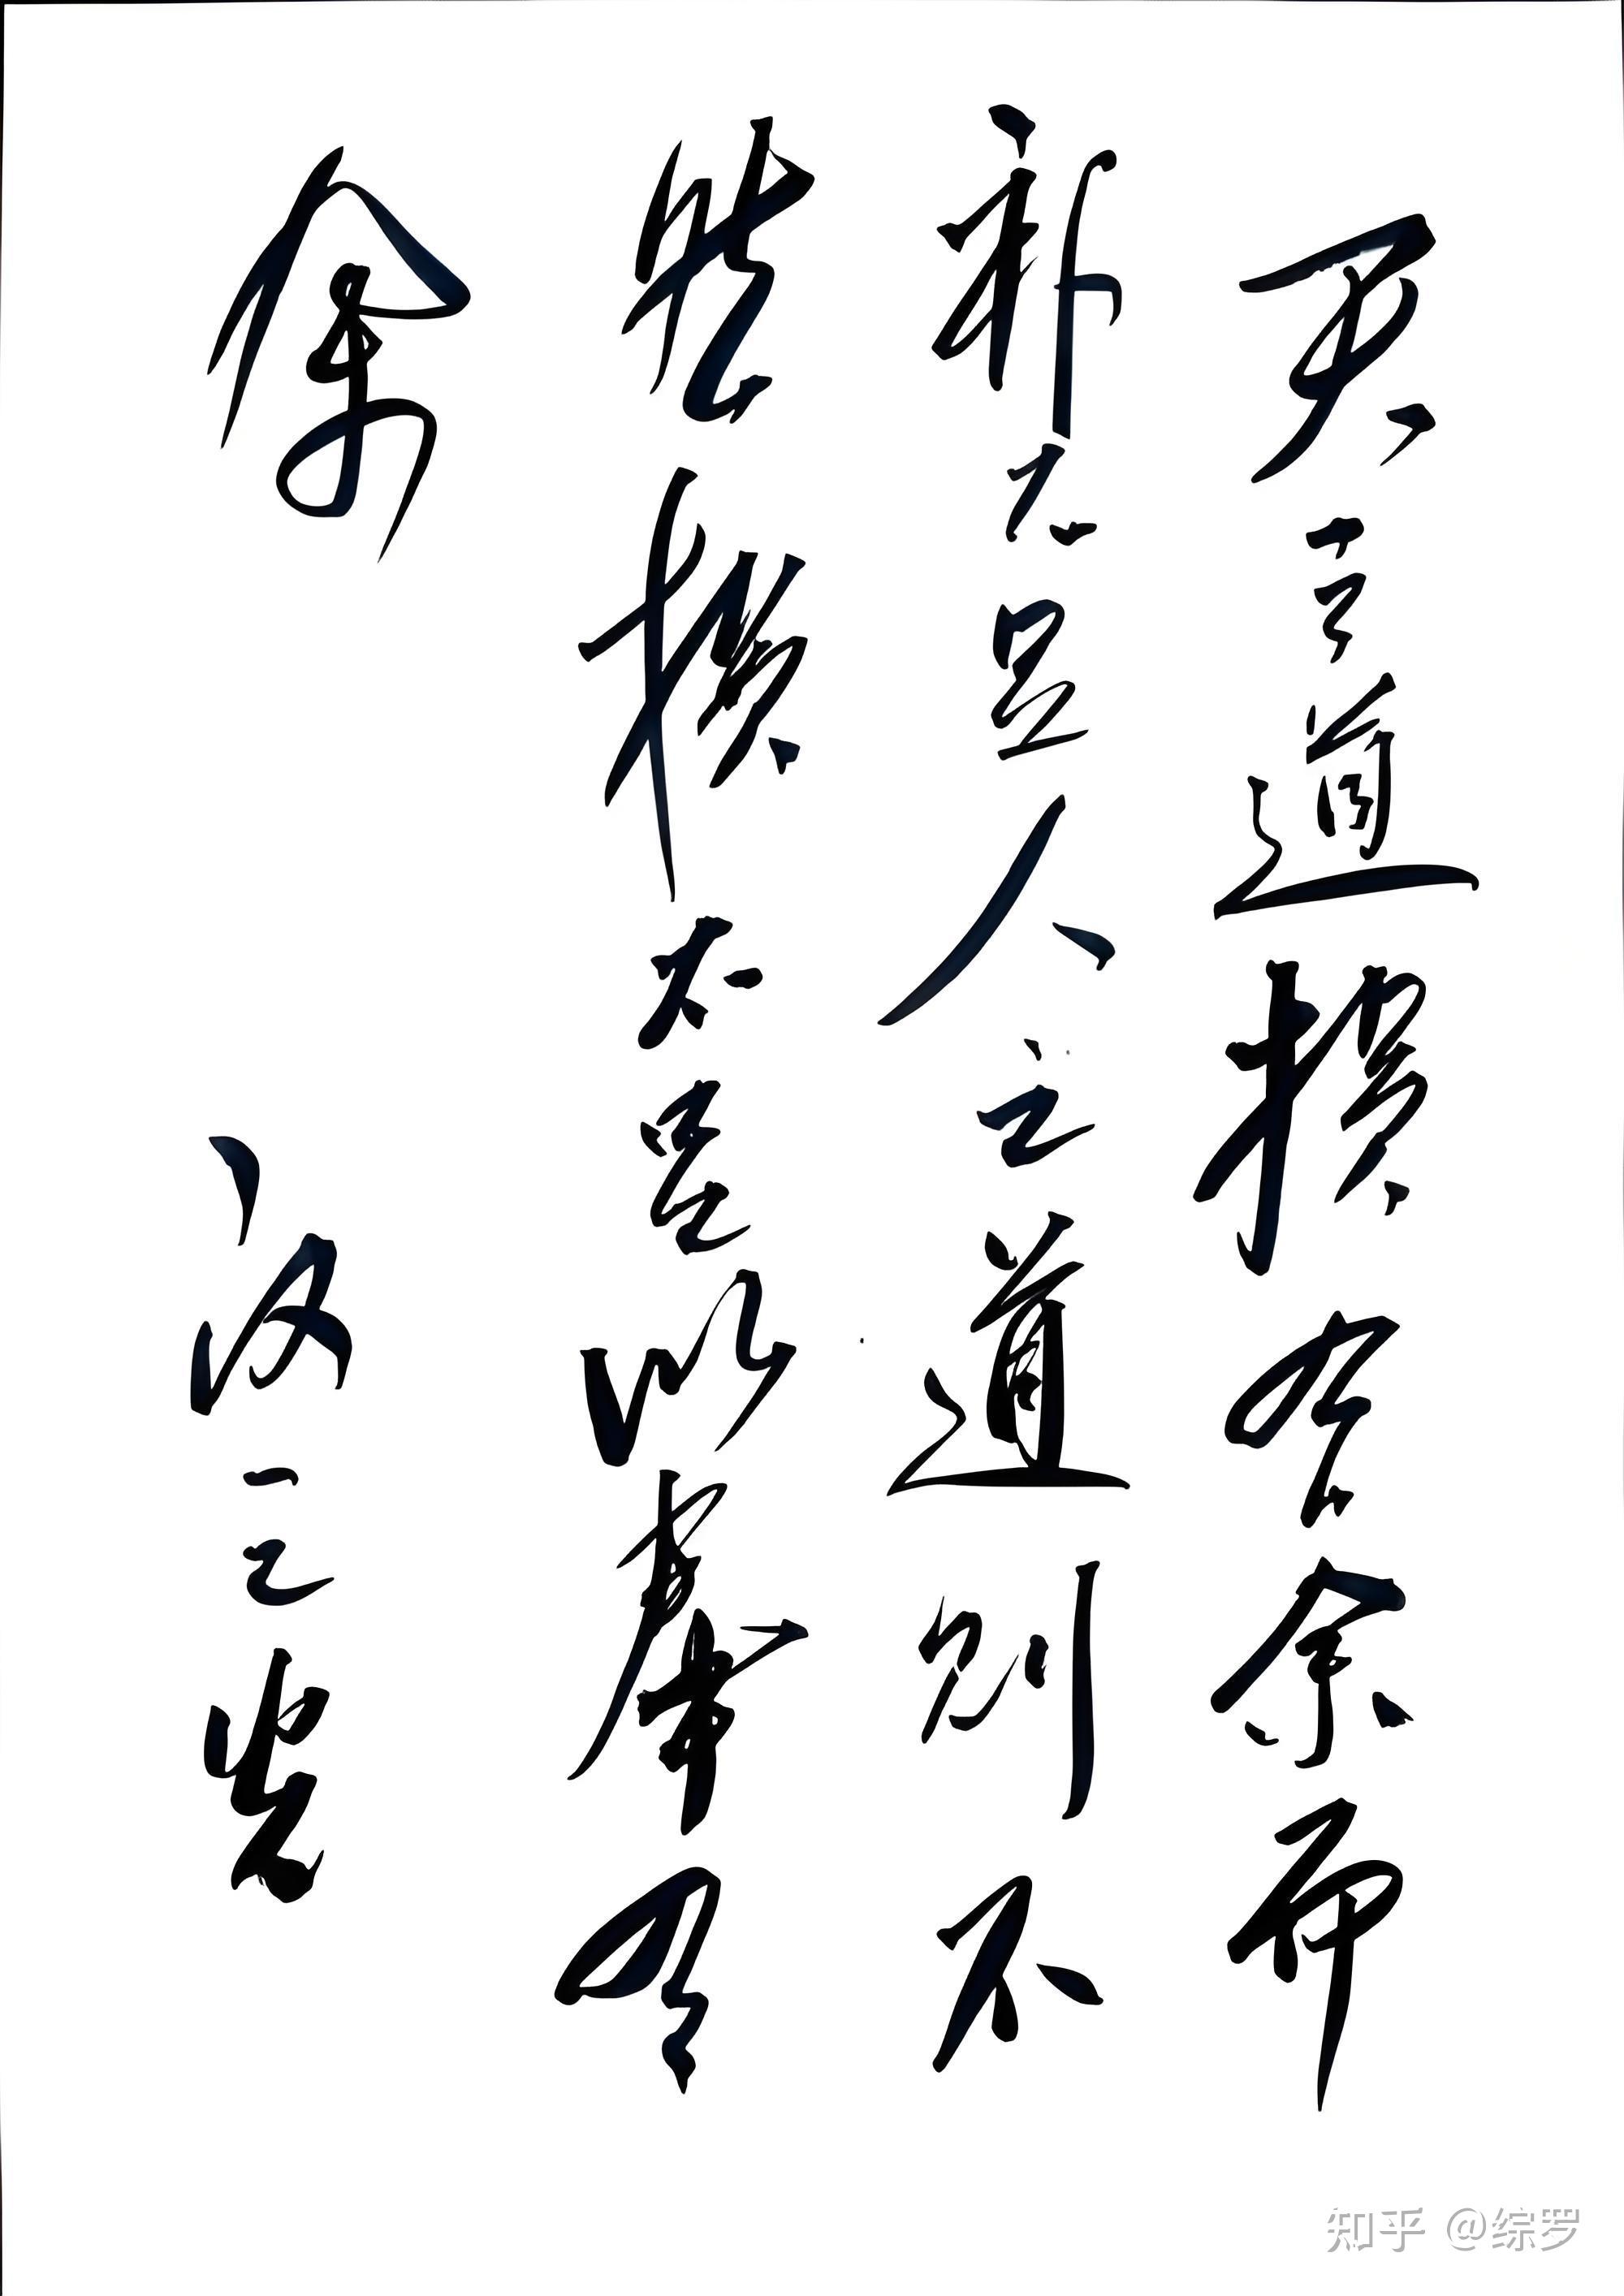 天之道损有余而
補不足人之道则不
然損不足以奉有
餘
知乎 @综罗